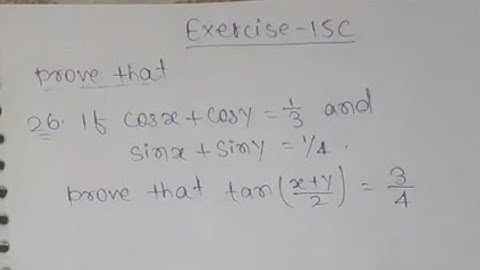 Exercise-15C
prove that
26. If cosx + cosy = 1/3 and
sinx + siny = 1/4.
prove that tan(x+y/2) = 3/4